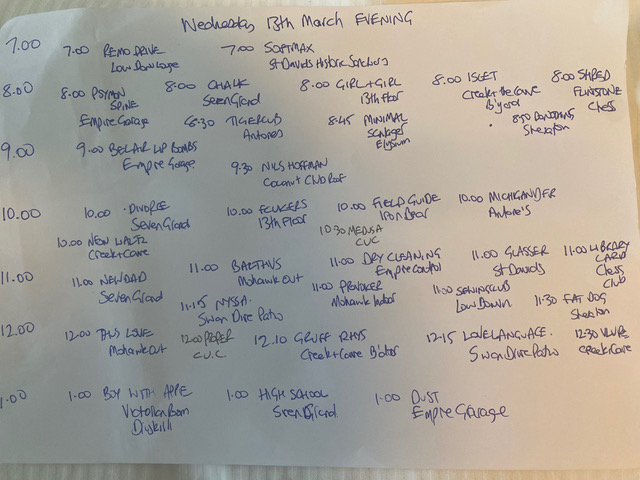 Wednesday 13th March EVENING
7.00 7.00 REMO DRIVE 7.00 SOFTMAX
Low Down Lounge St Davids Historic Sanctuary
8.00 8.00 PSYMON 8.00 CHALK 8.00 GIRL+GIRL 8.00 ISLET 8.00 SHRED
SPINE Seven Grand 13th Floor Creek+the Cave FLINTSTONE
Empire Garage B'yard Chess
8:30 TIGERCUB 8:45 MINIMAL 8:50
Antones Schlager Sheraton
Elysium
9.00 9.00 BELAIR LIP BOMBS
Empire Garage 9.30 NILS HOFFMAN
Coconut Club Roof
10.00 10.00 DIVORCE 10.00 10.00 FIELD GUIDE 10.00 MICHIGANDER
Seven Grand 13th Floor Iron Bear Antone's
10.00 NEW WALTZ 10 30 MEDUSA
Creek+Cave CUC
11.00 11.00 NEWDAD 11.00 BALTHVS 11.00 DRY CLEANING 11.00 GLASSER 11.00 LIBRARY
Seven Grand Mohawk Out Empire Control St Davids CARD
Chess
Club
11.15 NYSSA 11.00 PROVOKER 11.00 11.30 FAT DOG
Swan Dive Patio Mohawk Indoor Low Down Sheraton
12.00 12.00 THUS LOVE 12.00 PROPER 12.10 GRUFF RHYS 12.15 LOVE LANGUAGE. 12.30
Mohawk Out C.U.C. Creek+Cave B'door Swan Dive Patio Creek+Cave
1.00 1.00 BOY WITH APPLE 1.00 HIGH SCHOOL 1.00 DUST
Victorian Room Seven Grand Empire Garage
Driskill